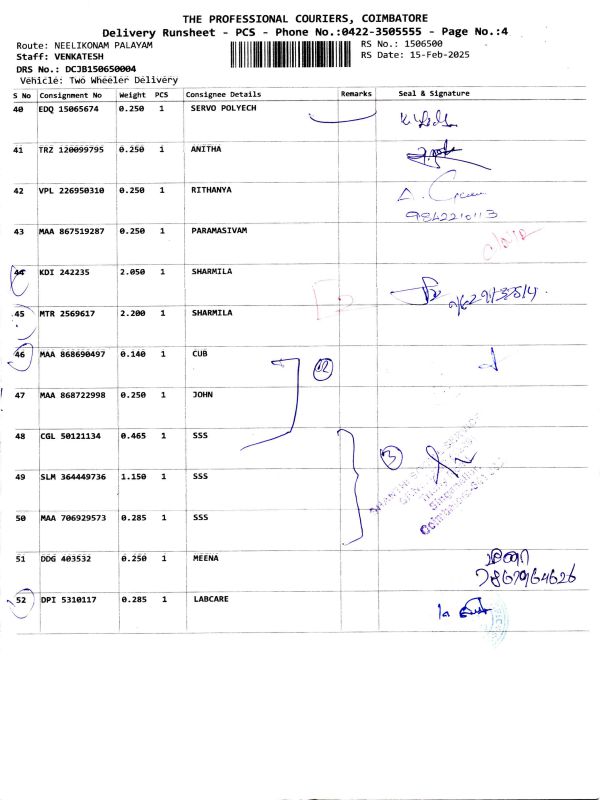 THE PROFESSIONAL COURIERS, COIMBATORE
Delivery Runsheet - PCS - Phone No.:0422-3505555 - Page No.:4
Route: NEELIKONAM PALAYAM RS No.: 1506500
Staff: VENKATESH RS Date: 15-Feb-2025
DRS No.: DCJB150650004
Vehicle: Two Wheeler Delivery
S No Consignment No Weight PCS Consignee Details Remarks Seal & Signature
40 EDQ 15065674 0.250 1 SERVO POLYECH
41 TRZ 120099795 0.250 1 ANITHA
42 VPL 226950310 0.250 1 RITHANYA
9842210113
43 MAA 867519287 0.250 1 PARAMASIVAM
44 KDI 242235 2.050 1 SHARMILA
45 MTR 2569617 2.200 1 SHARMILA
46 MAA 868690497 0.140 1 CUB
47 MAA 868722998 0.250 1 JOHN
48 CGL 50121134 0.465 1 SSS
3
49 SLM 364449736 1.150 1 SSS
50 MAA 706929573 0.285 1 SSS
51 DDG 403532 0.250 1 MEENA
7867964626
52 DPI 5310117 0.285 1 LABCARE